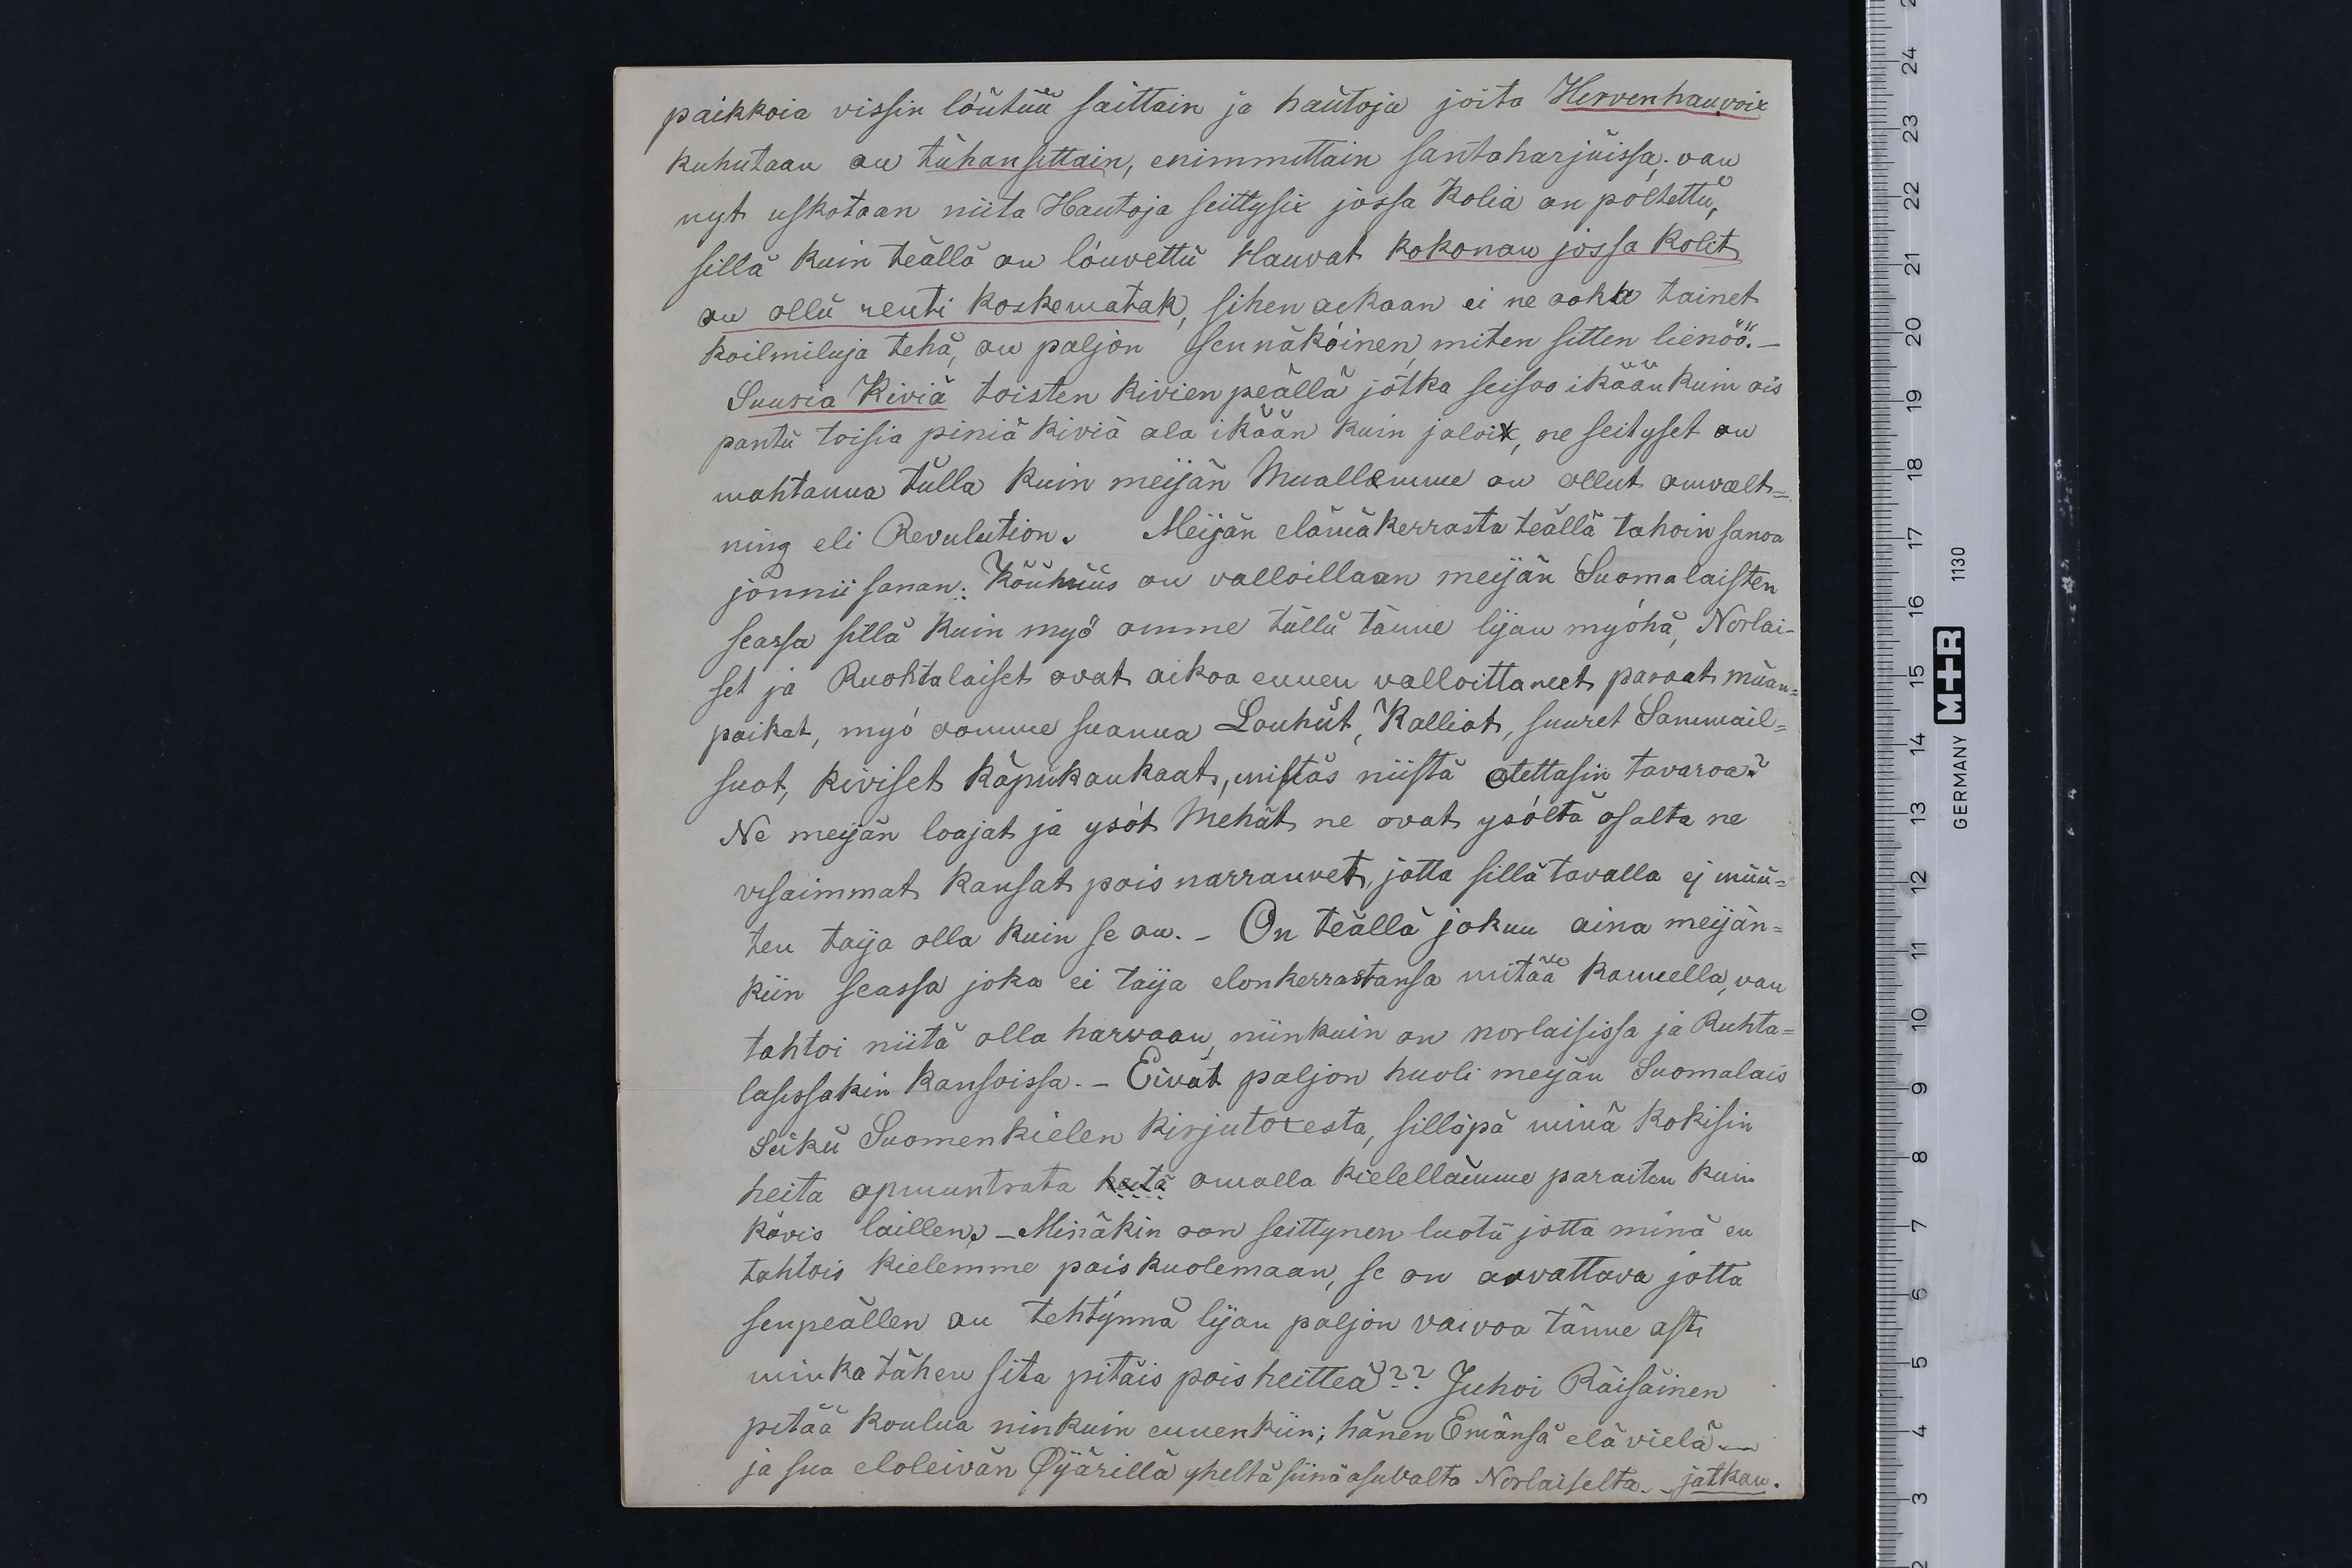 paikkoia vissin löutüü saittain ja hautoja joita Hervenhauvoix
kuhutaan on tuhansittain, enimmittain santaharjuissa; van
nyt uskotaan niita Hautoja seittysix jossa Kolia on poltettu,
silla kuin teällä on löuvettu Hauvat kokonan jossa Kolit
on ollu renti koskematak, sihen aekaan ei ne ookk tainet
koilmiluja tehä, on paljon sennäköinen, miten sitten lienöö. -
Suusia Kiviä toisten kivien peällä jotka seisoo ikään kuin ois
pantu toisia piniä kiviä ala ikään kuin jaloix, ne seityset on
mahtanna tulla kuin meijän Muallemme on ollut omvælt=
ning eli Revulution. Meijän elämäkerrasta teällä tahoin sanoa
jonnii sanan: Köuhüüs on valloillaan meijän Suomalaisten
seassa sillä kuin myö omme tullu tänne lijan myöhä, Norlai-
set ja Ruohtalaiset ovat aikoa ennen valloittaneet paraat müan=
paikat, myö oomme suanna Louhut, Kalliot, suuret Sammail=
suot, kiviset käpükankaat, mistäs niistä otettasin tavaroa?
Ne meijän loajat ja ysöt Mehät ne ovat ysöltä osalta ne
visaimmat Kansat pois narranvet, jotta sillä tavalla ej müü=
ten taija olla kuin se on. - On teällä jokuu aina meijän=
kiin seassa joka ei taija elonkerrastansa mitää kannella, van
tahtoi niitä olla harvaan, niinkuin on norlaisissa ja Ruhta=
lasissakin kansoissa. - Eivät paljon huoli meijän Suomalais
Seikü Suomenkielen kirjutoxesta, silläpä minä kokisin
heita opmuntrata heitä omalla kielellämme paraiten kuin
kävis laillen. - Minäkin oon seittynen luotü jotta minä en
tahtois kielemme pois kuolemaan, se on arvattava jotta
senpeällen on tehtynnä lijan paljon vaivoa tänne asti
minka tähen sita pitäis pois heitteä?? Juhoi Räisäinen
pitää koulua ninkuin ennenkiin; hänen Emänsä elä vielä -
ja sua eloleivän Øijärillä yheltä siinä asuvalta Norlaiselta. - jatkan.
24
23
22
21
20
19
18
17
16
15
14
13
12
11
10
9
8
7
6
5
4
3
GERMANY M+R 1130